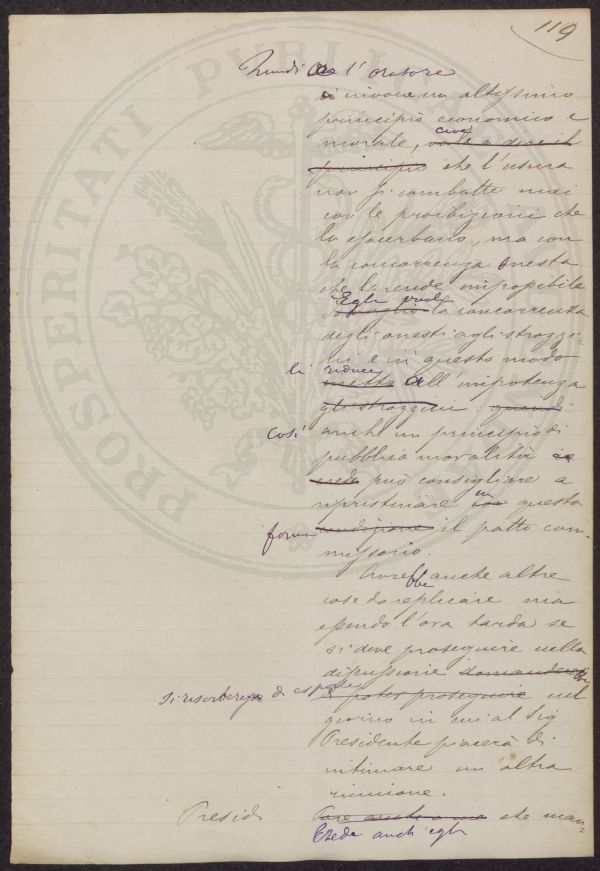 119
Quindi l'oratore
si invoca un altissimo
principio economico e
morale, cioè vale a dire il
principio che l'usura
non si combatte mai
con le proibizioni che
la esacerbano, ma con
la concorrenza onesta
che la rende impossibile
Egli vuole la concorrenza
degli onesti agli strozzi-
ni e in questo modo
li riduce mette all'impotenza
gli strozzini: quindi
Così anche un principio di
pubblica moralità
credo può consigliare a
ripristinare in questa
forma condizione il patto com-
missorio.
Avrebbe anche altre
cose da replicare ma
essendo l'ora tarda se
si deve proseguire nella
discussione domanderebbe
si riserberebbe di esporle di poter proseguire nel
giorno in cui al Sig
Presidente piacerà di
intimare un'altra
riunione.
Presid Pare anche a me che man-
Crede anch'egli
PROSPERITATI PUBLICAE